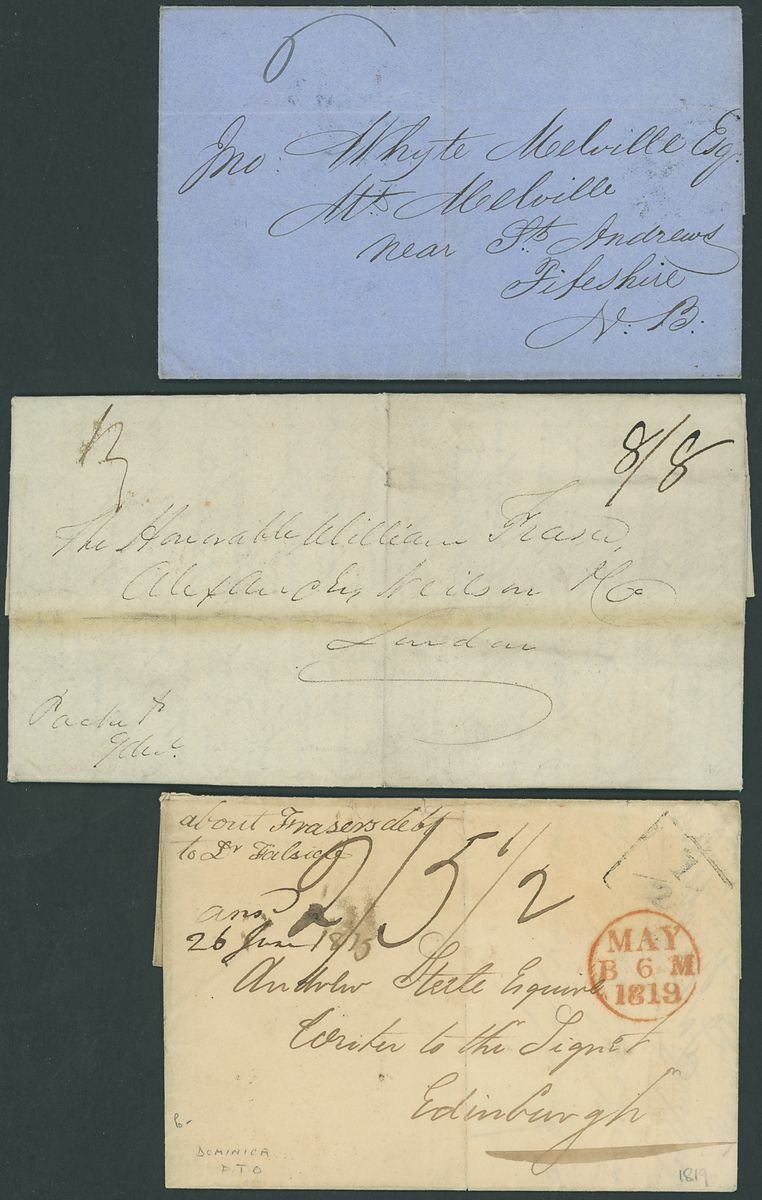 6
Jno. Whyte Melville Esq.
Mt. Melville
near St. Andrews
Fifeshire
N. B.
8/8
The Honorable William Fraser,
Alexander, Neilson & Co
London
Packet
about Frasers debt
to Dr Falside
2/5 1/2
ansd
26 June
1/2
MAY
B 6 M
1819
Andrew Steele Esquire
Writer to the Signet
Edinburgh
DOMINICA
P.T.O
1819